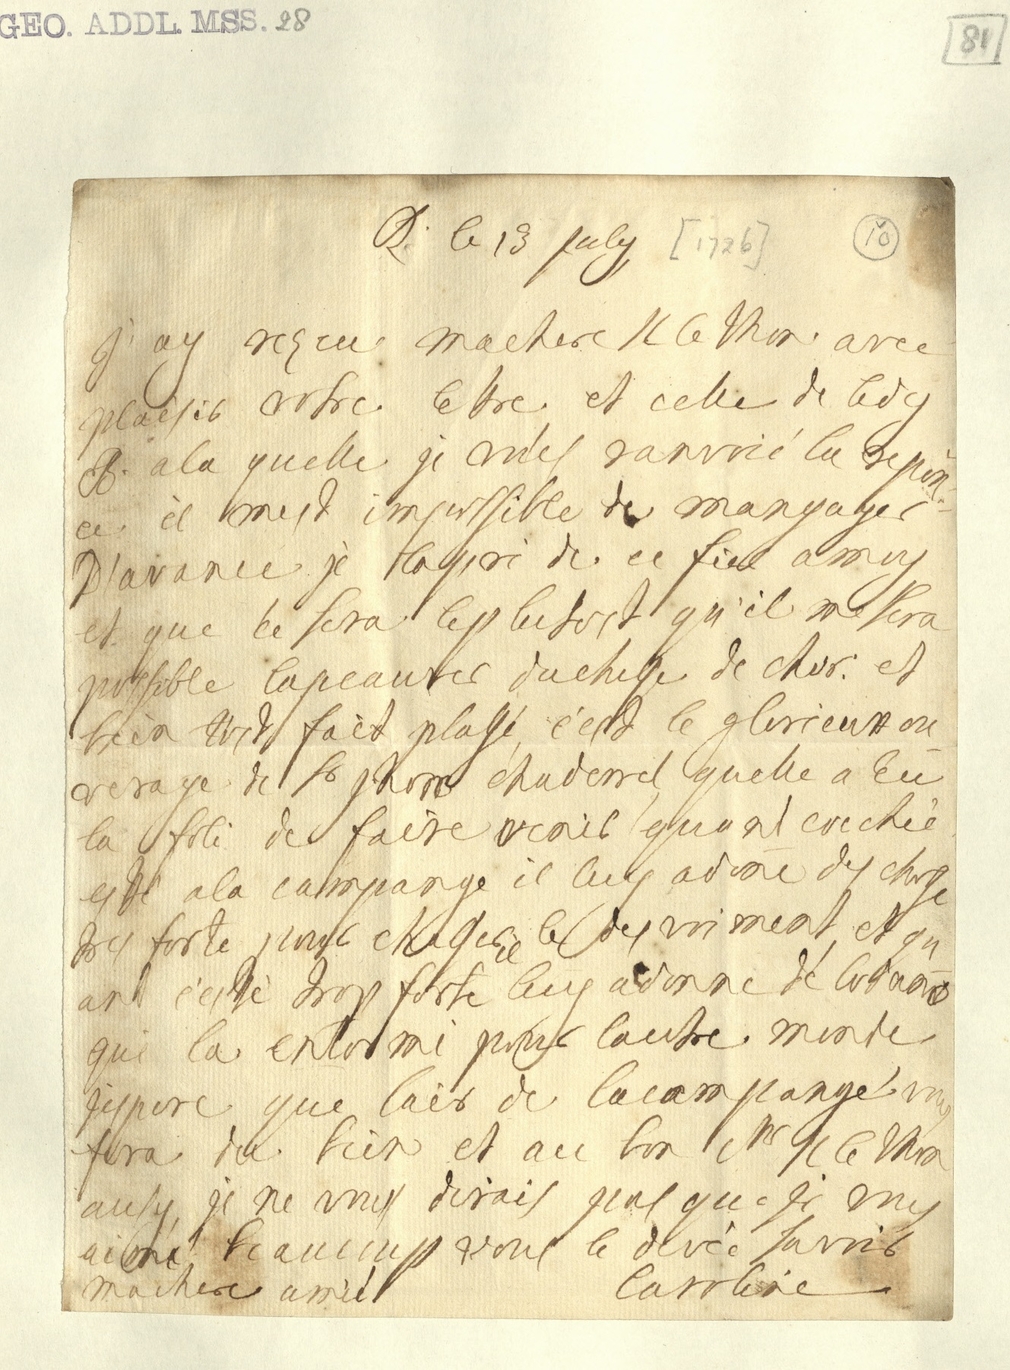 GEO. ADDL. MSS. 28
81
R. le 13 july [1726]
10
j'ay resceu machere Kle Thon avec
plaisir votre lettre et celle de ledy
P. ala quelle je vous ranvoié la repon
ce il mest impossible de mangager
D'avance je
et que ce sera leplutost qu'il me sera
possible lapeauvre duchesse de chor. et
bien tost fait plasse, c'est le glorieux ou
verage de Sr quelle a eu
la foli de faire venir quant ce
esté ala campange il luy adoné des chose
tres forte pour les et qu
ant c'esté trop forte luy adonne dé lodanom
qui la entormi pour lautre monde
jespere que lair de lacampange vous
fera du bien et au bon Mr Kle Thon
ausy, je ne vous dirais pas que je vous
aime beaucoup vous le devée savoir
machere amie Caroline